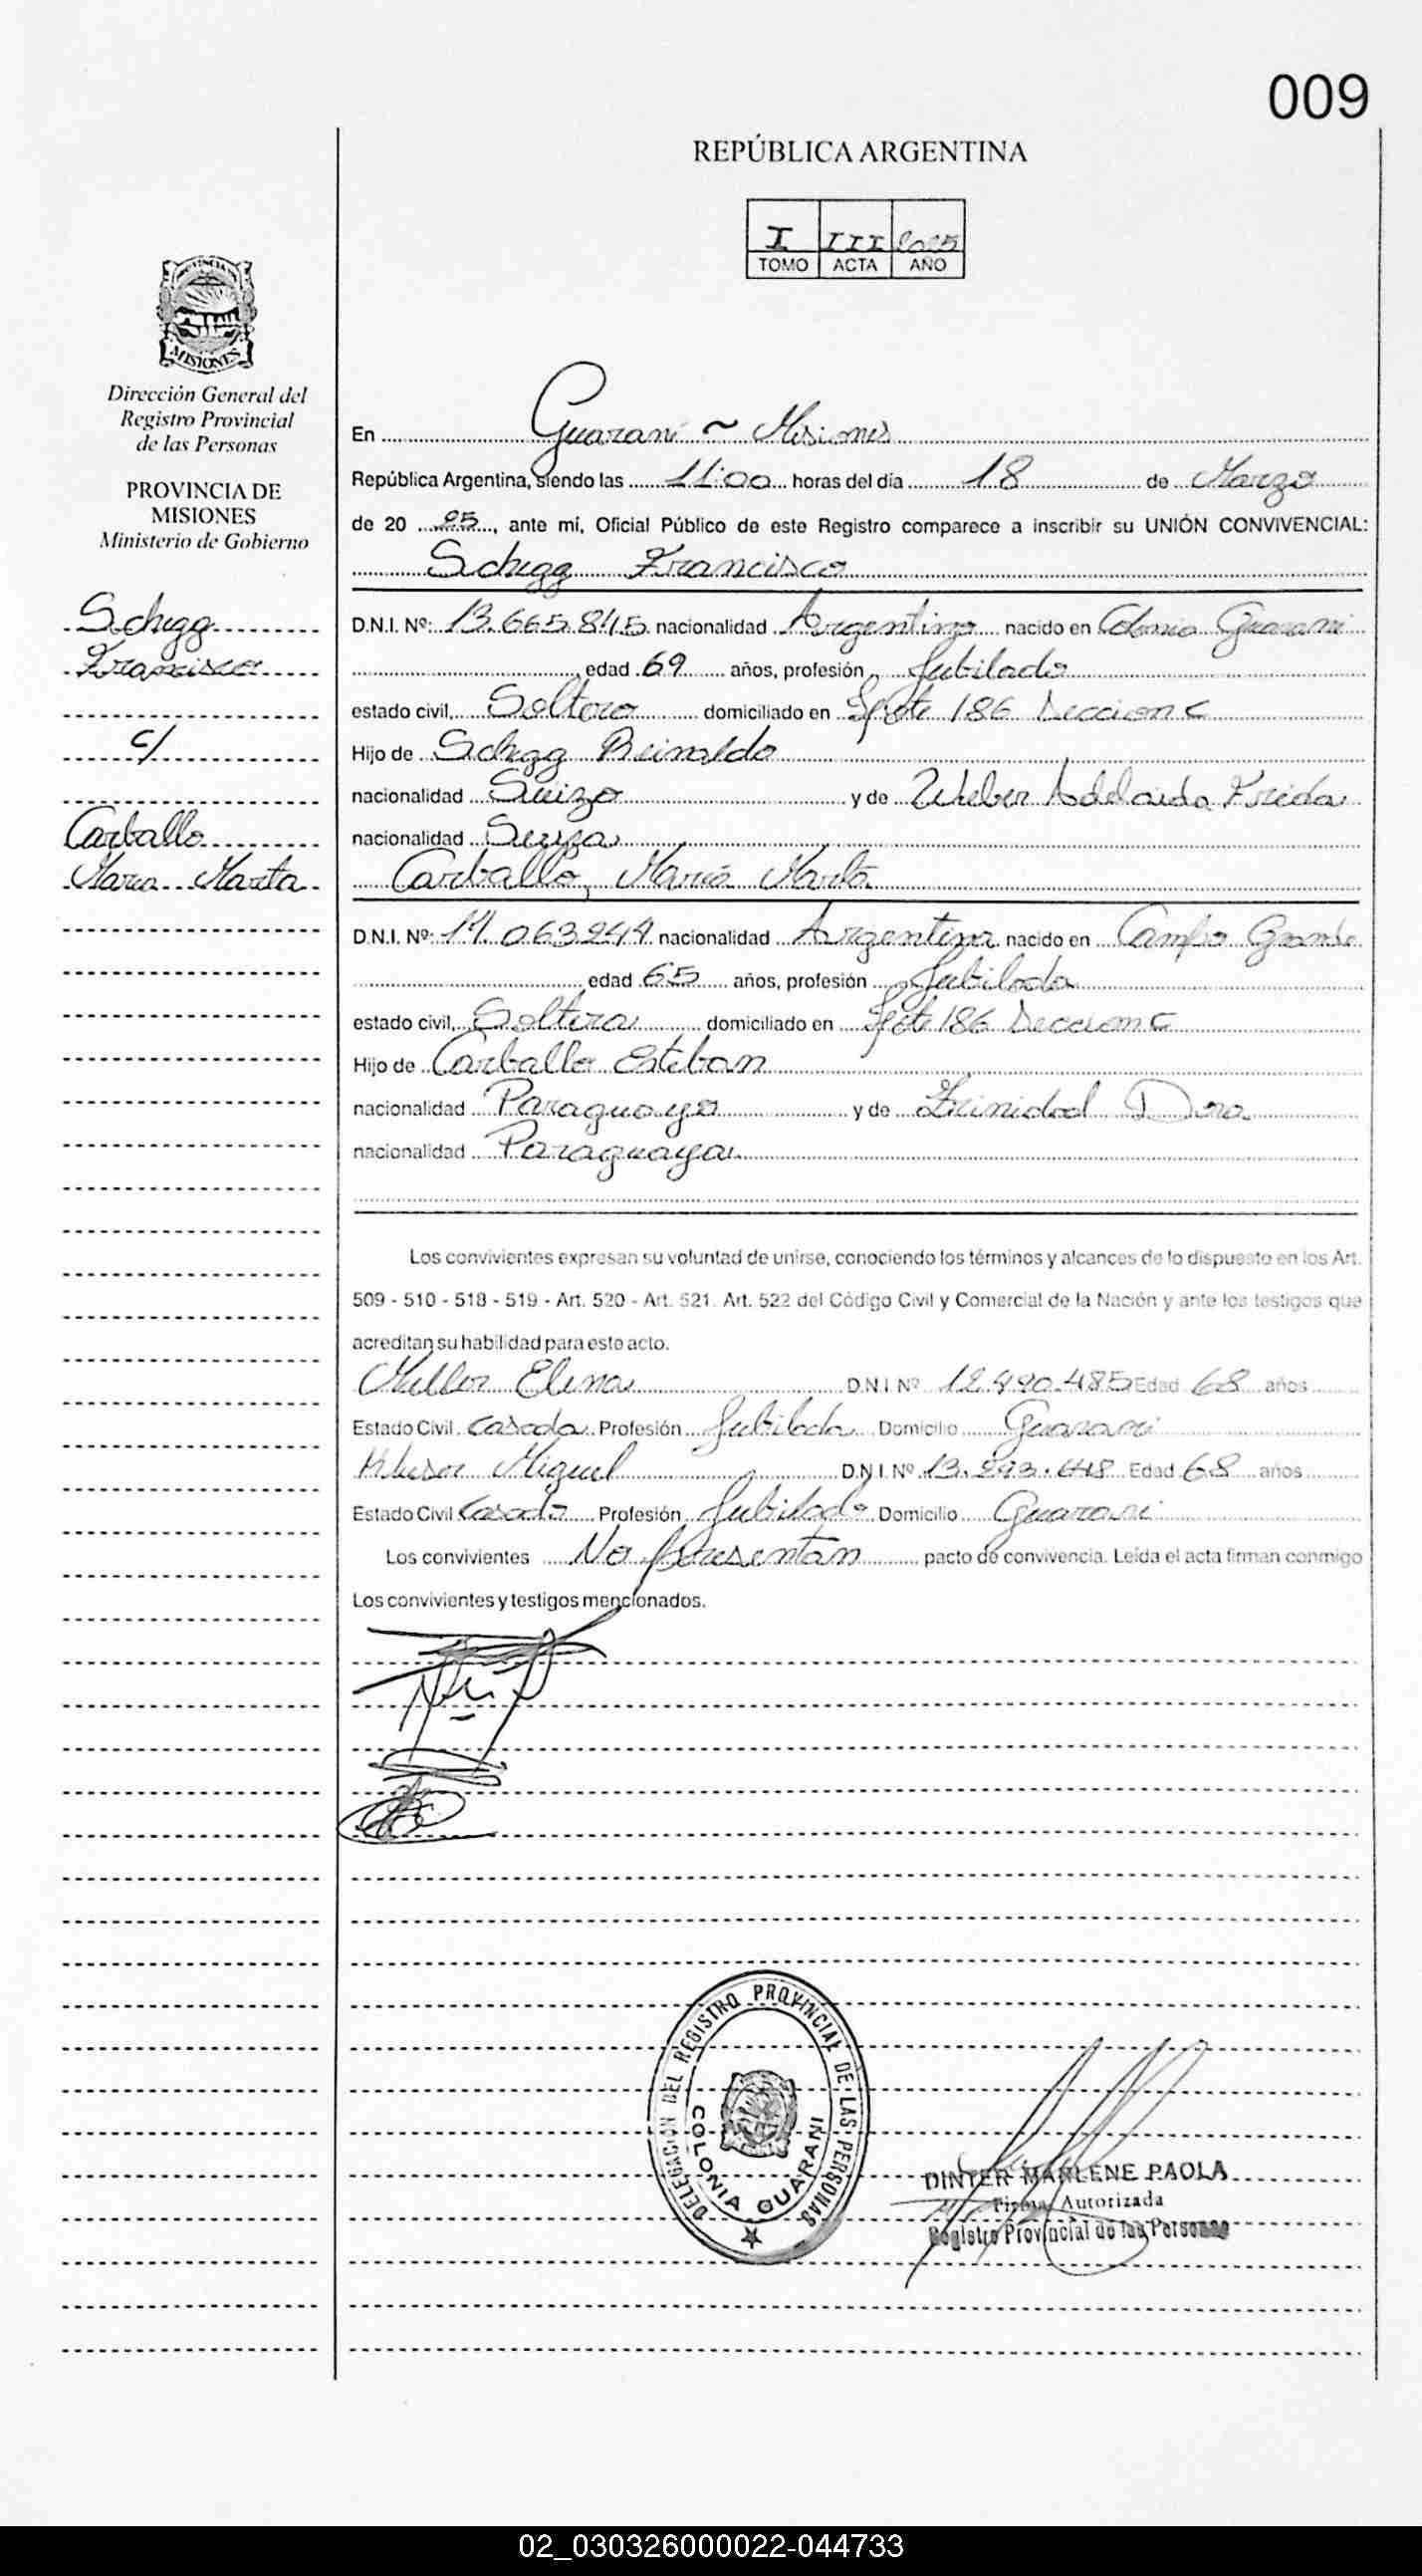 009
REPÚBLICA ARGENTINA
I III 2025
TOMO ACTA AÑO
MISIONES
Dirección General del
Registro Provincial
de las Personas
PROVINCIA DE
MISIONES
Ministerio de Gobierno
Schegg
Francisco
c/
Carballo
Maria Marta
En Guarani ~ Misiones
República Argentina, siendo las 11:00 horas del día 18 de Marzo
de 20 25, ante mí, Oficial Público de este Registro comparece a inscribir su UNIÓN CONVIVENCIAL:
Schegg Francisco
D.N.I. Nº: 13.665.845 nacionalidad Argentino nacido en Colonia Guarani
edad 69 años, profesión Jubilado
estado civil, Soltero domiciliado en Lote 186 Seccion C
Hijo de Schegg Reinaldo
nacionalidad Suizo y de Weber Adelaida Frieda
nacionalidad Suiza
Carballo, Maria Marta
D.N.I. Nº: 14.063244 nacionalidad Argentina nacido en Campo Grande
edad 65 años, profesión Jubilada
estado civil, Soltera domiciliado en Lote 186 Seccion C
Hijo de Carballo Esteban
nacionalidad Paraguayo y de Trinidad Dora
nacionalidad Paraguaya
Los convivientes expresan su voluntad de unirse, conociendo los términos y alcances de lo dispuesto en los Art.
509 - 510 - 518 - 519 - Art. 520 - Art. 521. Art. 522 del Código Civil y Comercial de la Nación y ante los testigos que
acreditan su habilidad para este acto.
Muller Elena D.N.I. Nº 12.490.485 Edad 68 años
Estado Civil Casada Profesión Jubilada Domicilio Guarani
Miguel D.N.I. Nº 13.293.648 Edad 68 años
Estado Civil Casado Profesión Jubilado Domicilio Guarani
Los convivientes No presentan pacto de convivencia. Leída el acta firman conmigo
Los convivientes y testigos mencionados.
DELEGACION DEL REGISTRO PROVINCIAL DE LAS PERSONAS
COLONIA GUARANI
DINTER MARLENE PAOLA
Firma Autorizada
Registro Provincial de las Personas
02_030326000022-044733